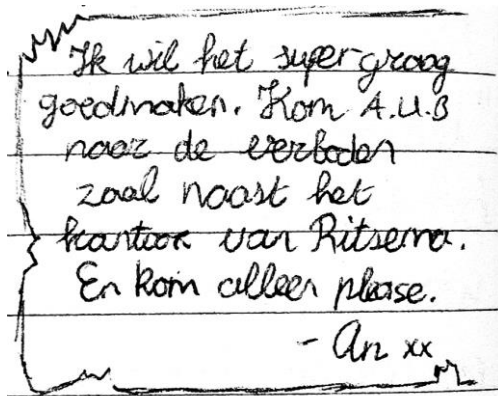 Ik wil het super graag
goedmaken. Kom A.U.B
naar de verboden
zaal naast het
kantoor van Ritsema.
En kom alleen please.
- An xx